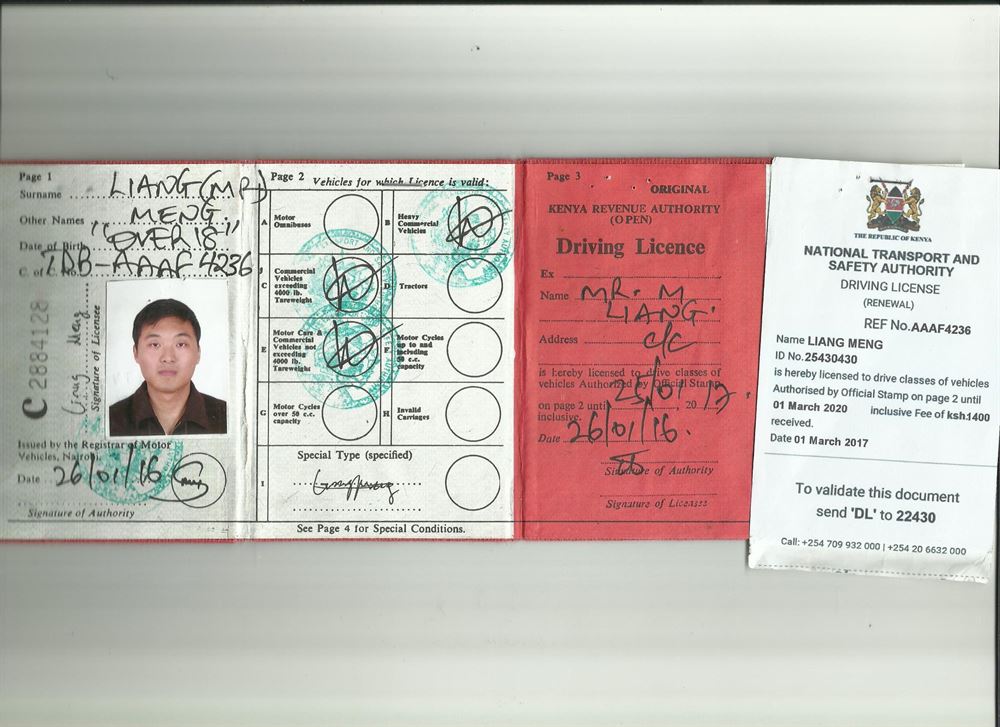 Page 1
Surname LIANG (MR)
Other Names MENG.
Date of Birth "OVER 18"
C. of C. No. TDB-AAAF4236
C2884128
Liang Meng
Signature of Licensee
Issued by the Registrar of Motor
Vehicles, Nairobi.
Date 26/01/16
Signature of Authority
Page 2
Vehicles for which Licence is valid:
A Motor Omnibuses
B Heavy Commercial Vehicles
C Commercial Vehicles exceeding 4000 lb. Tareweight
D Tractors
E Motor Cars & Commercial Vehicles not exceeding 4000 lb. Tareweight
F Motor Cycles up to and including 50 c.c. capacity
G Motor Cycles over 50 c.c. capacity
H Invalid Carriages
Special Type (specified)
I
See Page 4 for Special Conditions.
Page 3
ORIGINAL
KENYA REVENUE AUTHORITY
(OPEN)
Driving Licence
Ex
Name MR. M
LIANG.
Address c/c
is hereby licensed to drive classes of
vehicles Authorized by Official Stamp
on page 2 until 25/01/, 2017.
inclusive.
Date 26/01/16.
Signature of Authority
Signature of Licensee
THE REPUBLIC OF KENYA
NATIONAL TRANSPORT AND
SAFETY AUTHORITY
DRIVING LICENSE
(RENEWAL)
REF No.AAAF4236
Name LIANG MENG
ID No.25430430
is hereby licensed to drive classes of vehicles
Authorised by Official Stamp on page 2 until
01 March 2020 inclusive Fee of ksh1400
received.
Date 01 March 2017
To validate this document
send 'DL' to 22430
Call: +254 709 932 000 | +254 20 6632 000